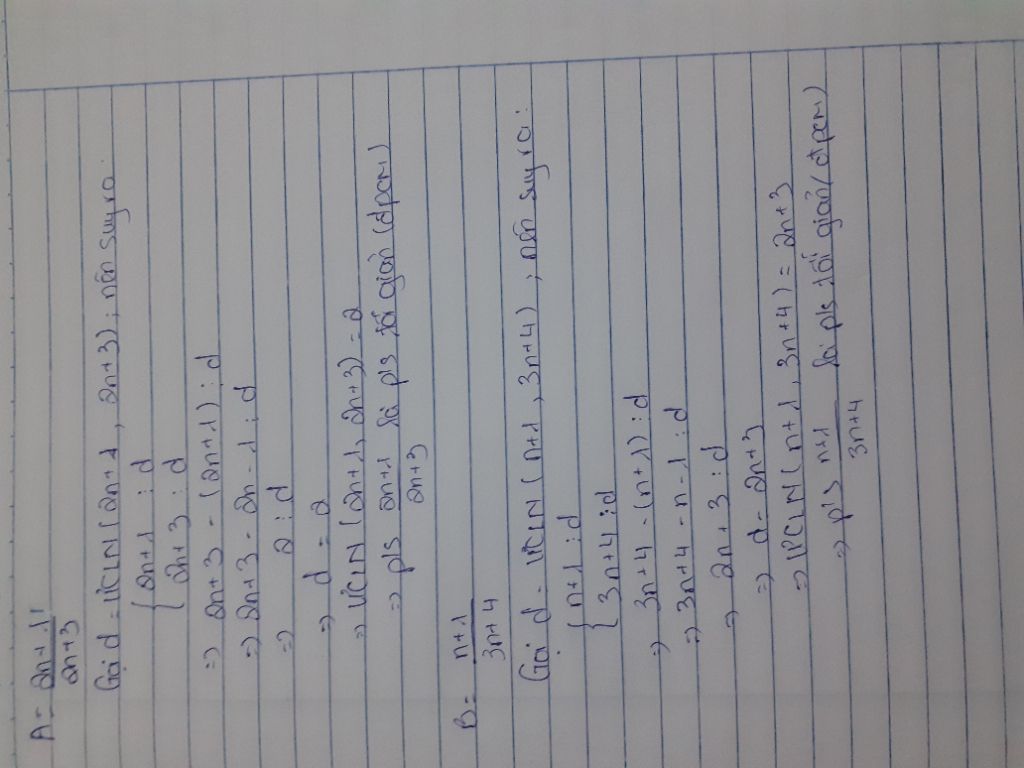 A = 2n+1 / 2n+3
Gọi d = ƯCLN (2n+1, 2n+3); nên suy ra
{ 2n+1 ⋮ d
2n+3 ⋮ d
=> 2n+3 - (2n+1) ⋮ d
=> 2n+3 - 2n - 1 ⋮ d
=> 2 ⋮ d
=> d = 2
=> ƯCLN (2n+1, 2n+3) = 2
=> p/s 2n+1 / 2n+3 là p/s tối giản (đpcm)
B = n+1 / 3n+4
Gọi d = ƯCLN (n+1, 3n+4); nên suy ra:
{ n+1 ⋮ d
3n+4 ⋮ d
=> 3n+4 - (n+1) ⋮ d
=> 3n+4 - n - 1 ⋮ d
=> 2n+3 ⋮ d
=> d = 2n+3
=> ƯCLN (n+1, 3n+4) = 2n+3
=> p/s n+1 / 3n+4 là p/s tối giản (đpcm)